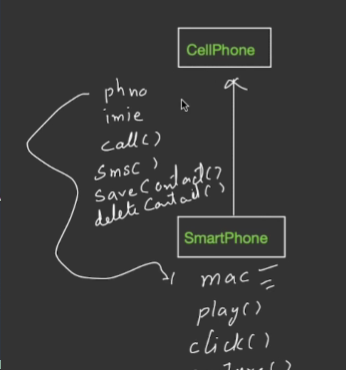 CellPhone
phno
imie
call()
sms( )
saveContact()
deleteContact()
SmartPhone
mac
play()
click()